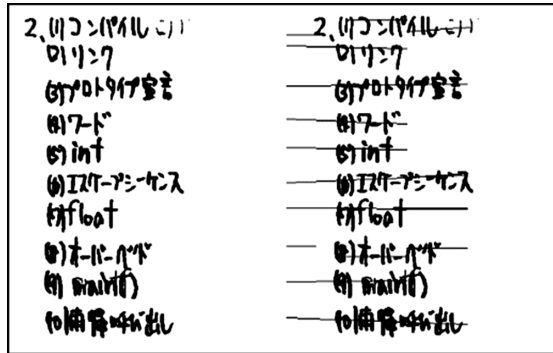 2、(1)コンパイル
(2)リンク
(3)プロトタイプ宣言
(4)ワード
(5)int
(6)エスケープシーケンス
(7)float
(8)オーバーヘッド
(9) main()
(10) 呼び出し
2、(1)コンパイル
(2)リンク
(3)プロトタイプ宣言
(4)ワード
(5)int
(6)エスケープシーケンス
(7)float
(8)オーバーヘッド
(9) main()
(10) 呼び出し